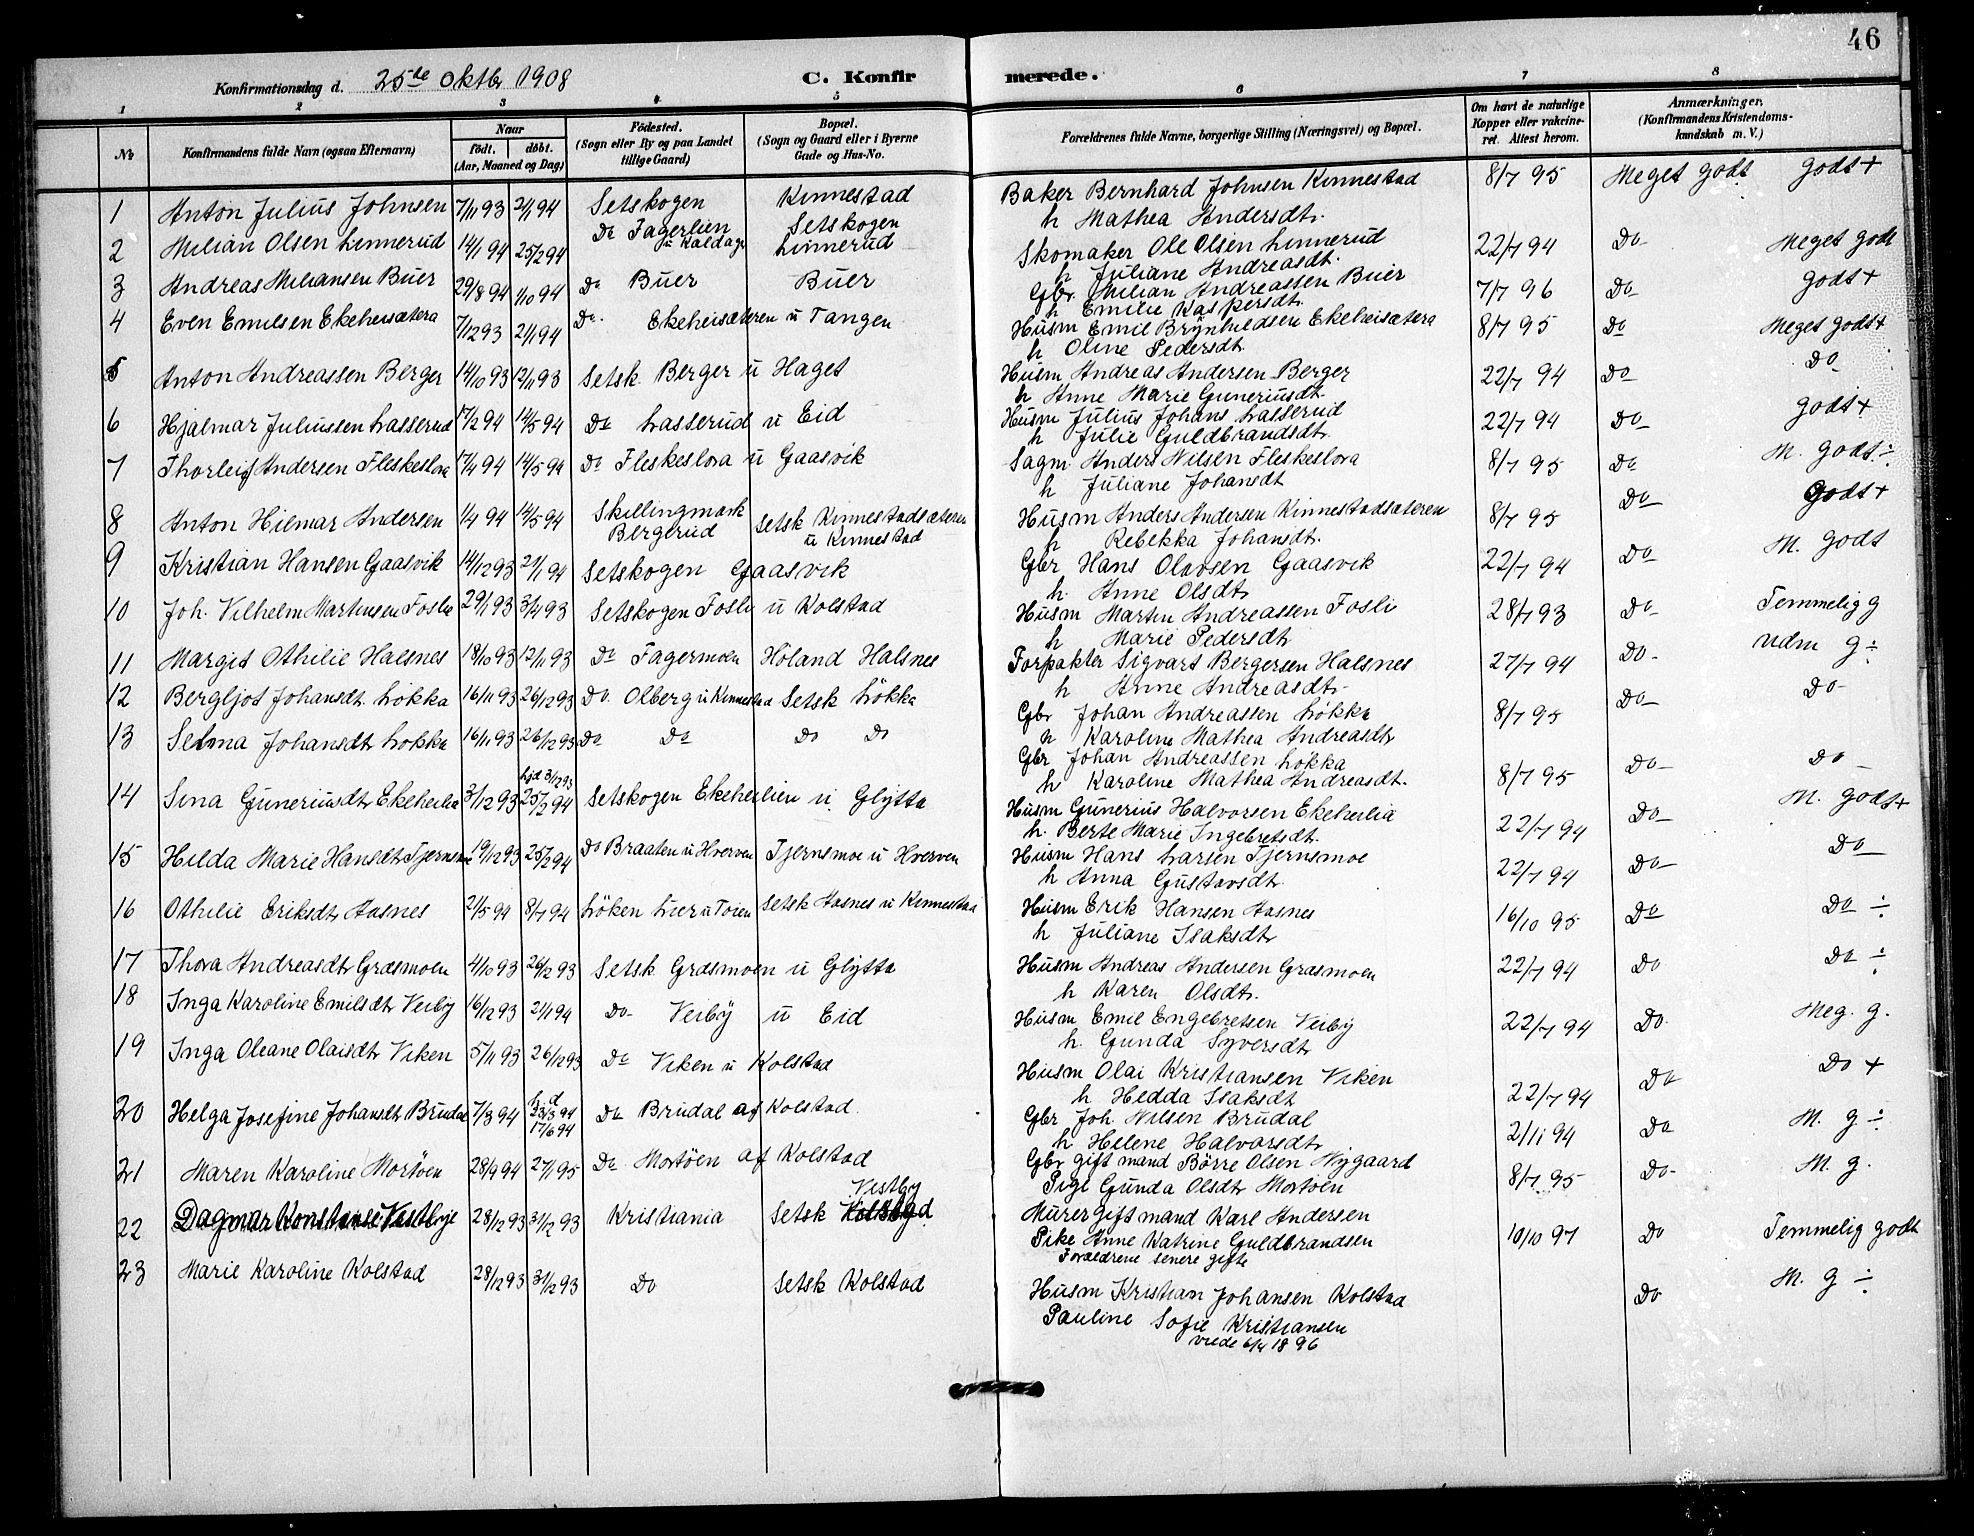 46
Konfirmationsdag d. 25de Oktbr 1908
C. Konfirmerede.
1 2 3 4 5 6 7 8
No
Konfirmandens fulde Navn (ogsaa Efternavn)
Naar
født. døbt.
(Aar, Maaned og Dag)
Fødested.
(Sogn eller By og paa Landet
tillige Gaard)
Bopæl.
(Sogn og Gaard eller i Byerne
Gade og Hus-No.
Forældrenes fulde Navne, borgerlige Stilling (Næringsvei) og Bopæl.
Om havt de naturlige
Kopper eller vakcine-
ret. Attest herom.
Anmærkninger.
(Konfirmandens Kristendoms-
kundskab m. V.)
1 Anton Julius Johnsen 7/11 93 2/1 94 Setskogen Kinnestad Setskogen
Baker Bernhard Johnsen Kinnestad 8/7 95 Meget godt godt +
h Mathea Andersdtr.
2 Milian Olsen Linnerud 14/1 94 25/2 94 Do Fagerlien u Kaldager Linnerud
Skomaker Ole Olsen Linnerud 22/7 94 Do Meget godt
h Juliane Andreasdt.
3 Andreas Miliansen Buer 29/8 94 1/10 94 Do Buer Buer
Gbr. Milian Andreassen Buer 7/7 96 Do godt +
h Emilie Kaspersdtr.
4 Even Emilsen Ekeheisætera 7/12 93 2/1 94 Do Ekeheisæteren u Tangen
Husm Emil Brynhildsen Ekeheisætera 8/7 95 Do Meget godt +
h Oline Pedersdt
5 Anton Andreassen Berger 14/10 93 12/11 93 Setsk Berger u Haget
Husm Andreas Andersen Berger 22/7 94 Do Do
h Anne Marie Guneriusdt.
6 Hjalmar Juliussen Lasserud 17/2 94 14/5 94 Do Lasserud u Eid
Husm Julius Johans Lasserud 22/7 94 Do godt +
h Julie Guldbrandsdt.
7 Thorleif Andersen Fleskeslora 17/4 94 14/5 94 Do Fleskeslora u Gaasvik
Sagm Anders Nilsen Fleskeslora 8/7 95 Do M. godt ÷
h Juliane Johansdt
8 Anton Hilmar Andersen 1/4 94 14/5 94 Skillingmark Bergerud Setsk Kinnestadsæteren u Kinnestad
Husm Anders Andersen Kinnestadsæteren 8/7 95 Do Godt +
h Rebekka Johansdt.
9 Kristian Hansen Gaasvik 14/12 93 21/1 94 Setskogen Gaasvik
Gbr Hans Olavsen Gaasvik 22/7 94 Do M. godt
h. Anne Olsdt
10 Joh. Vilhelm Martinsen Fosli 29/1 93 3/4 93 Setskogen Fosli u Kolstad
Husm Martin Andreassen Fosli 28/7 93 Do Temmelig g
h Marie Pedersdt
11 Margit Othilie Halsnes 18/10 93 12/11 93 Do Fagermoen Høland Halsnes
Forpakter Sigvart Bergersen Halsnes 27/7 94 Do Udm g ÷
h Anne Andreasdt
12 Bergljot Johansdt. Løkka 16/11 93 26/12 93 Do Olberg u Kinnestad Setsk Løkka
Gbr Johan Andreassen Løkka 8/7 95 Do Do
h Karoline Mathea Andreasdt
13 Selma Johansdt Løkka 16/11 93 26/12 93 Do Do Do Do
Gbr Johan Andreassen Løkka 8/7 95 Do Do
h Karoline Mathea Andreasdt.
14 Sina Guneriusdt Ekeheilia 3/12 93 hjd 31/12 93 25/2 94 Setskogen Ekeheilien u. Glytta
Husm Gunerius Halvorsen Ekeheilia 22/7 94 Do M. godt +
h. Berte Marie Ingebretsdt.
15 Hilda Marie Hansdt Tjernsmo 19/12 93 25/2 94 Do Braaten u Hverven Tjernsmoe u Hverven
Husm Hans Larsen Tjernsmoe 22/7 94 Do Do
h Anna Gustavsdt
16 Othilie Eriksdt Aasnes 21/5 94 8/7 94 Løken Lier u Toien Setsk Aasnes u Kinnestad
Husm Erik Hansen Aasnes 16/10 95 Do Do ÷
h Juliane Isaksdt
17 Thora Andreasdt Græsmoen 4/10 93 26/12 93 Setsk Græsmoen u Glytta
Husm Andreas Andersen Græsmoen 22/7 94 Do Do ÷
h Karen Olsdt.
18 Inga Karoline Emilsdt Veiby 16/12 93 21/1 94 Do Veiby u Eid
Husm Emil Engebretsen Veiby 22/7 94 Do Meg. g.
h. Gunda Syversdt
19 Inga Oleane Olaisdt Viken 5/11 93 26/12 93 Do Viken u Kolstad
Husm Olai Kristiansen Viken 22/7 94 Do Do +
h Hedda Isaksdt
20 Helga Josefine Johansdt Brudal 7/3 94 hjd 23/3 94 17/6 94 Do Brudal af Kolstad.
Gbr Joh. Nilsen Brudal 2/11 94 Do M. g ÷
h Helene Halvorsdt
21 Maren Karoline Mortøen 28/9 94 27/1 95 Do Mortøen af Kolstad
Gbr gift mand Børre Olsen Nygaard 8/7 95 Do M. g.
Pige Gunda Olsdt Mortøen
22 Dagmar Konstanse Vestbye 28/12 93 31/12 93 Kristiania Setsk Vestby
Murer gift mand Karl Andersen 10/10 97 Do Temmelig godt
Pike Anne Katrine Guldbrandsen
Forældrene senere gifte
23 Marie Karoline Kolstad 28/12 93 31/12 93 Do Setsk Kolstad
Husm Kristian Johansen Kolstad Do M. g ÷
Pauline Sofie Kristiansen
viede 6/4 1896